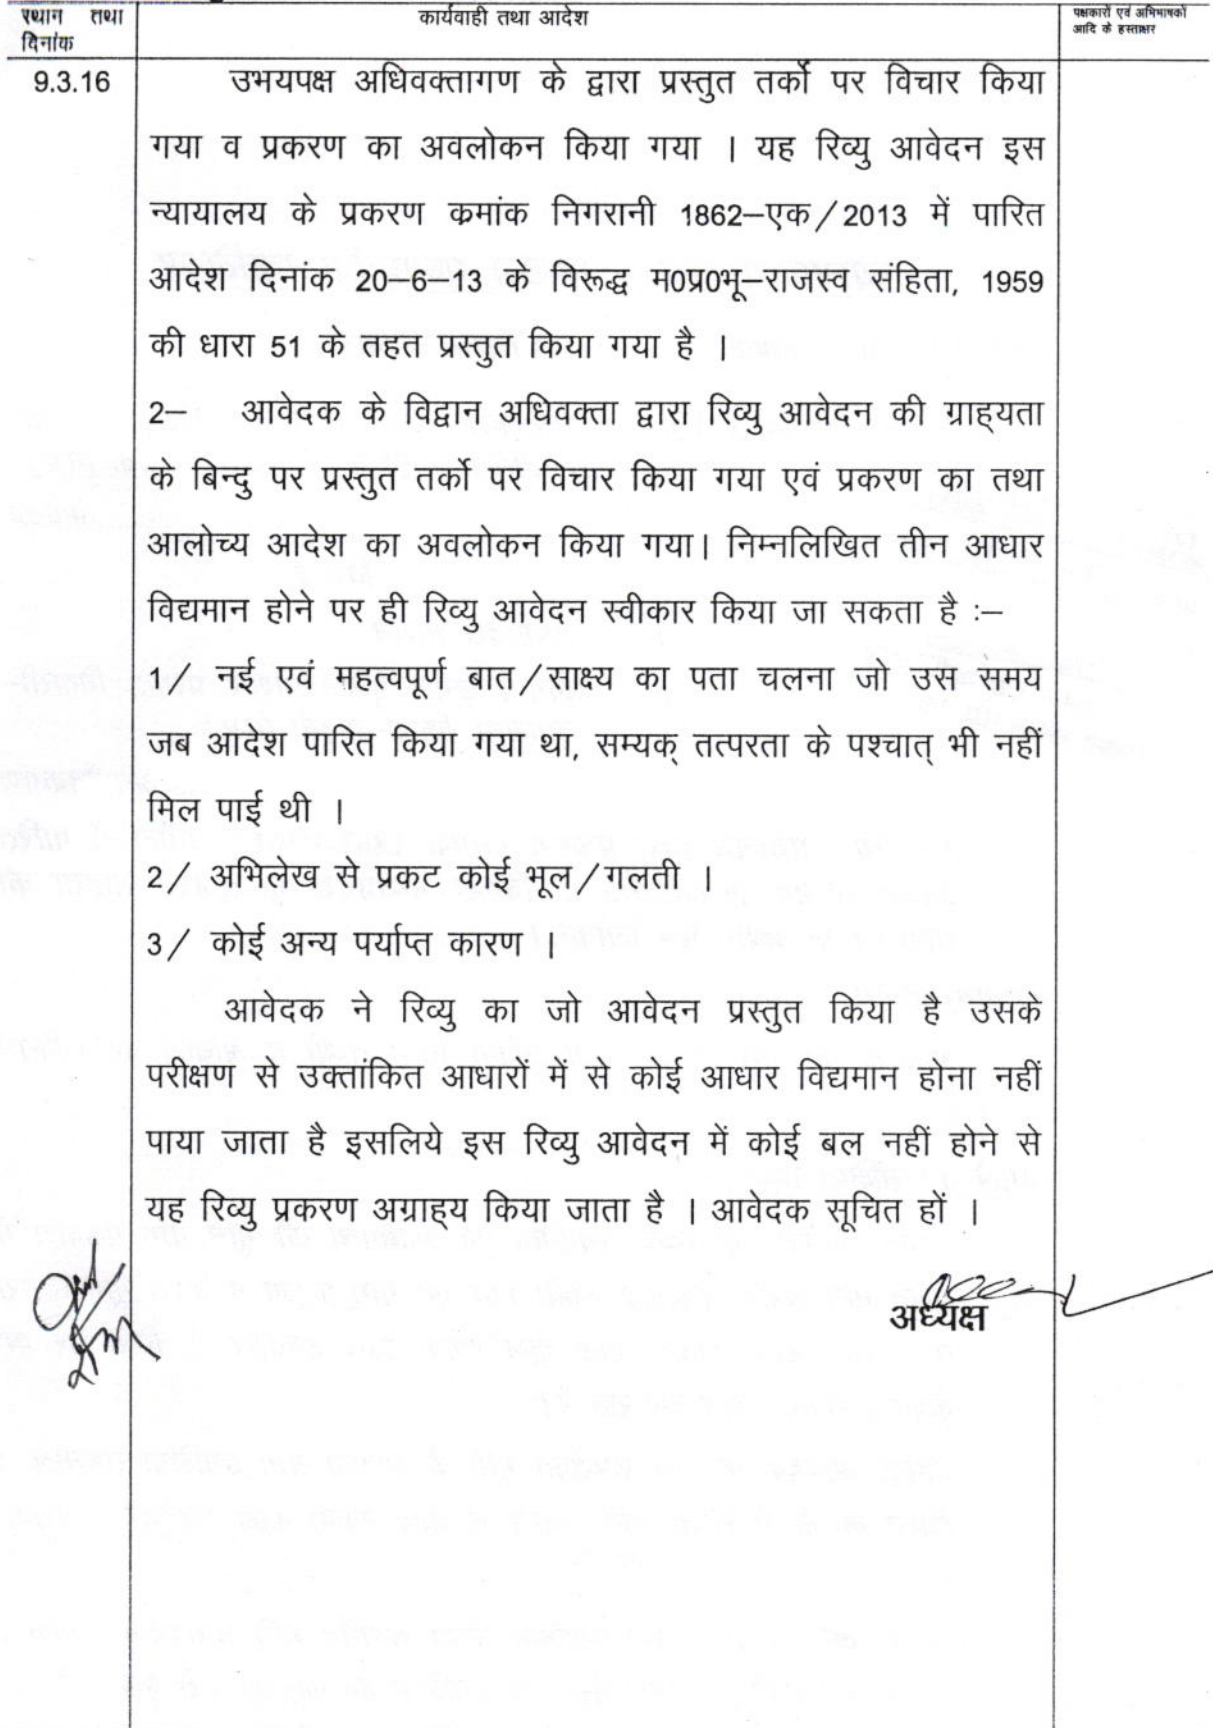 स्थान तथा
दिनांक
कार्यवाही तथा आदेश
पक्षकारों एवं अभिभाषकों
आदि के हस्ताक्षर
9.3.16
उभयपक्ष अधिवक्तागण के द्वारा प्रस्तुत तर्को पर विचार किया
गया व प्रकरण का अवलोकन किया गया । यह रिव्यु आवेदन इस
न्यायालय के प्रकरण कमांक निगरानी 1862–एक/2013 में पारित
आदेश दिनांक 20–6–13 के विरूद्ध म0प्र0भू–राजस्व संहिता, 1959
की धारा 51 के तहत प्रस्तुत किया गया है ।
2– आवेदक के विद्वान अधिवक्ता द्वारा रिव्यु आवेदन की ग्राह्यता
के बिन्दु पर प्रस्तुत तर्को पर विचार किया गया एवं प्रकरण का तथा
आलोच्य आदेश का अवलोकन किया गया। निम्नलिखित तीन आधार
विद्यमान होने पर ही रिव्यु आवेदन स्वीकार किया जा सकता है :–
1/ नई एवं महत्वपूर्ण बात/साक्ष्य का पता चलना जो उस समय
जब आदेश पारित किया गया था, सम्यक् तत्परता के पश्चात् भी नहीं
मिल पाई थी ।
2/ अभिलेख से प्रकट कोई भूल/गलती ।
3/ कोई अन्य पर्याप्त कारण ।
आवेदक ने रिव्यु का जो आवेदन प्रस्तुत किया है उसके
परीक्षण से उक्तांकित आधारों में से कोई आधार विद्यमान होना नहीं
पाया जाता है इसलिये इस रिव्यु आवेदन में कोई बल नहीं होने से
यह रिव्यु प्रकरण अग्राह्य किया जाता है । आवेदक सूचित हों ।
अध्यक्ष